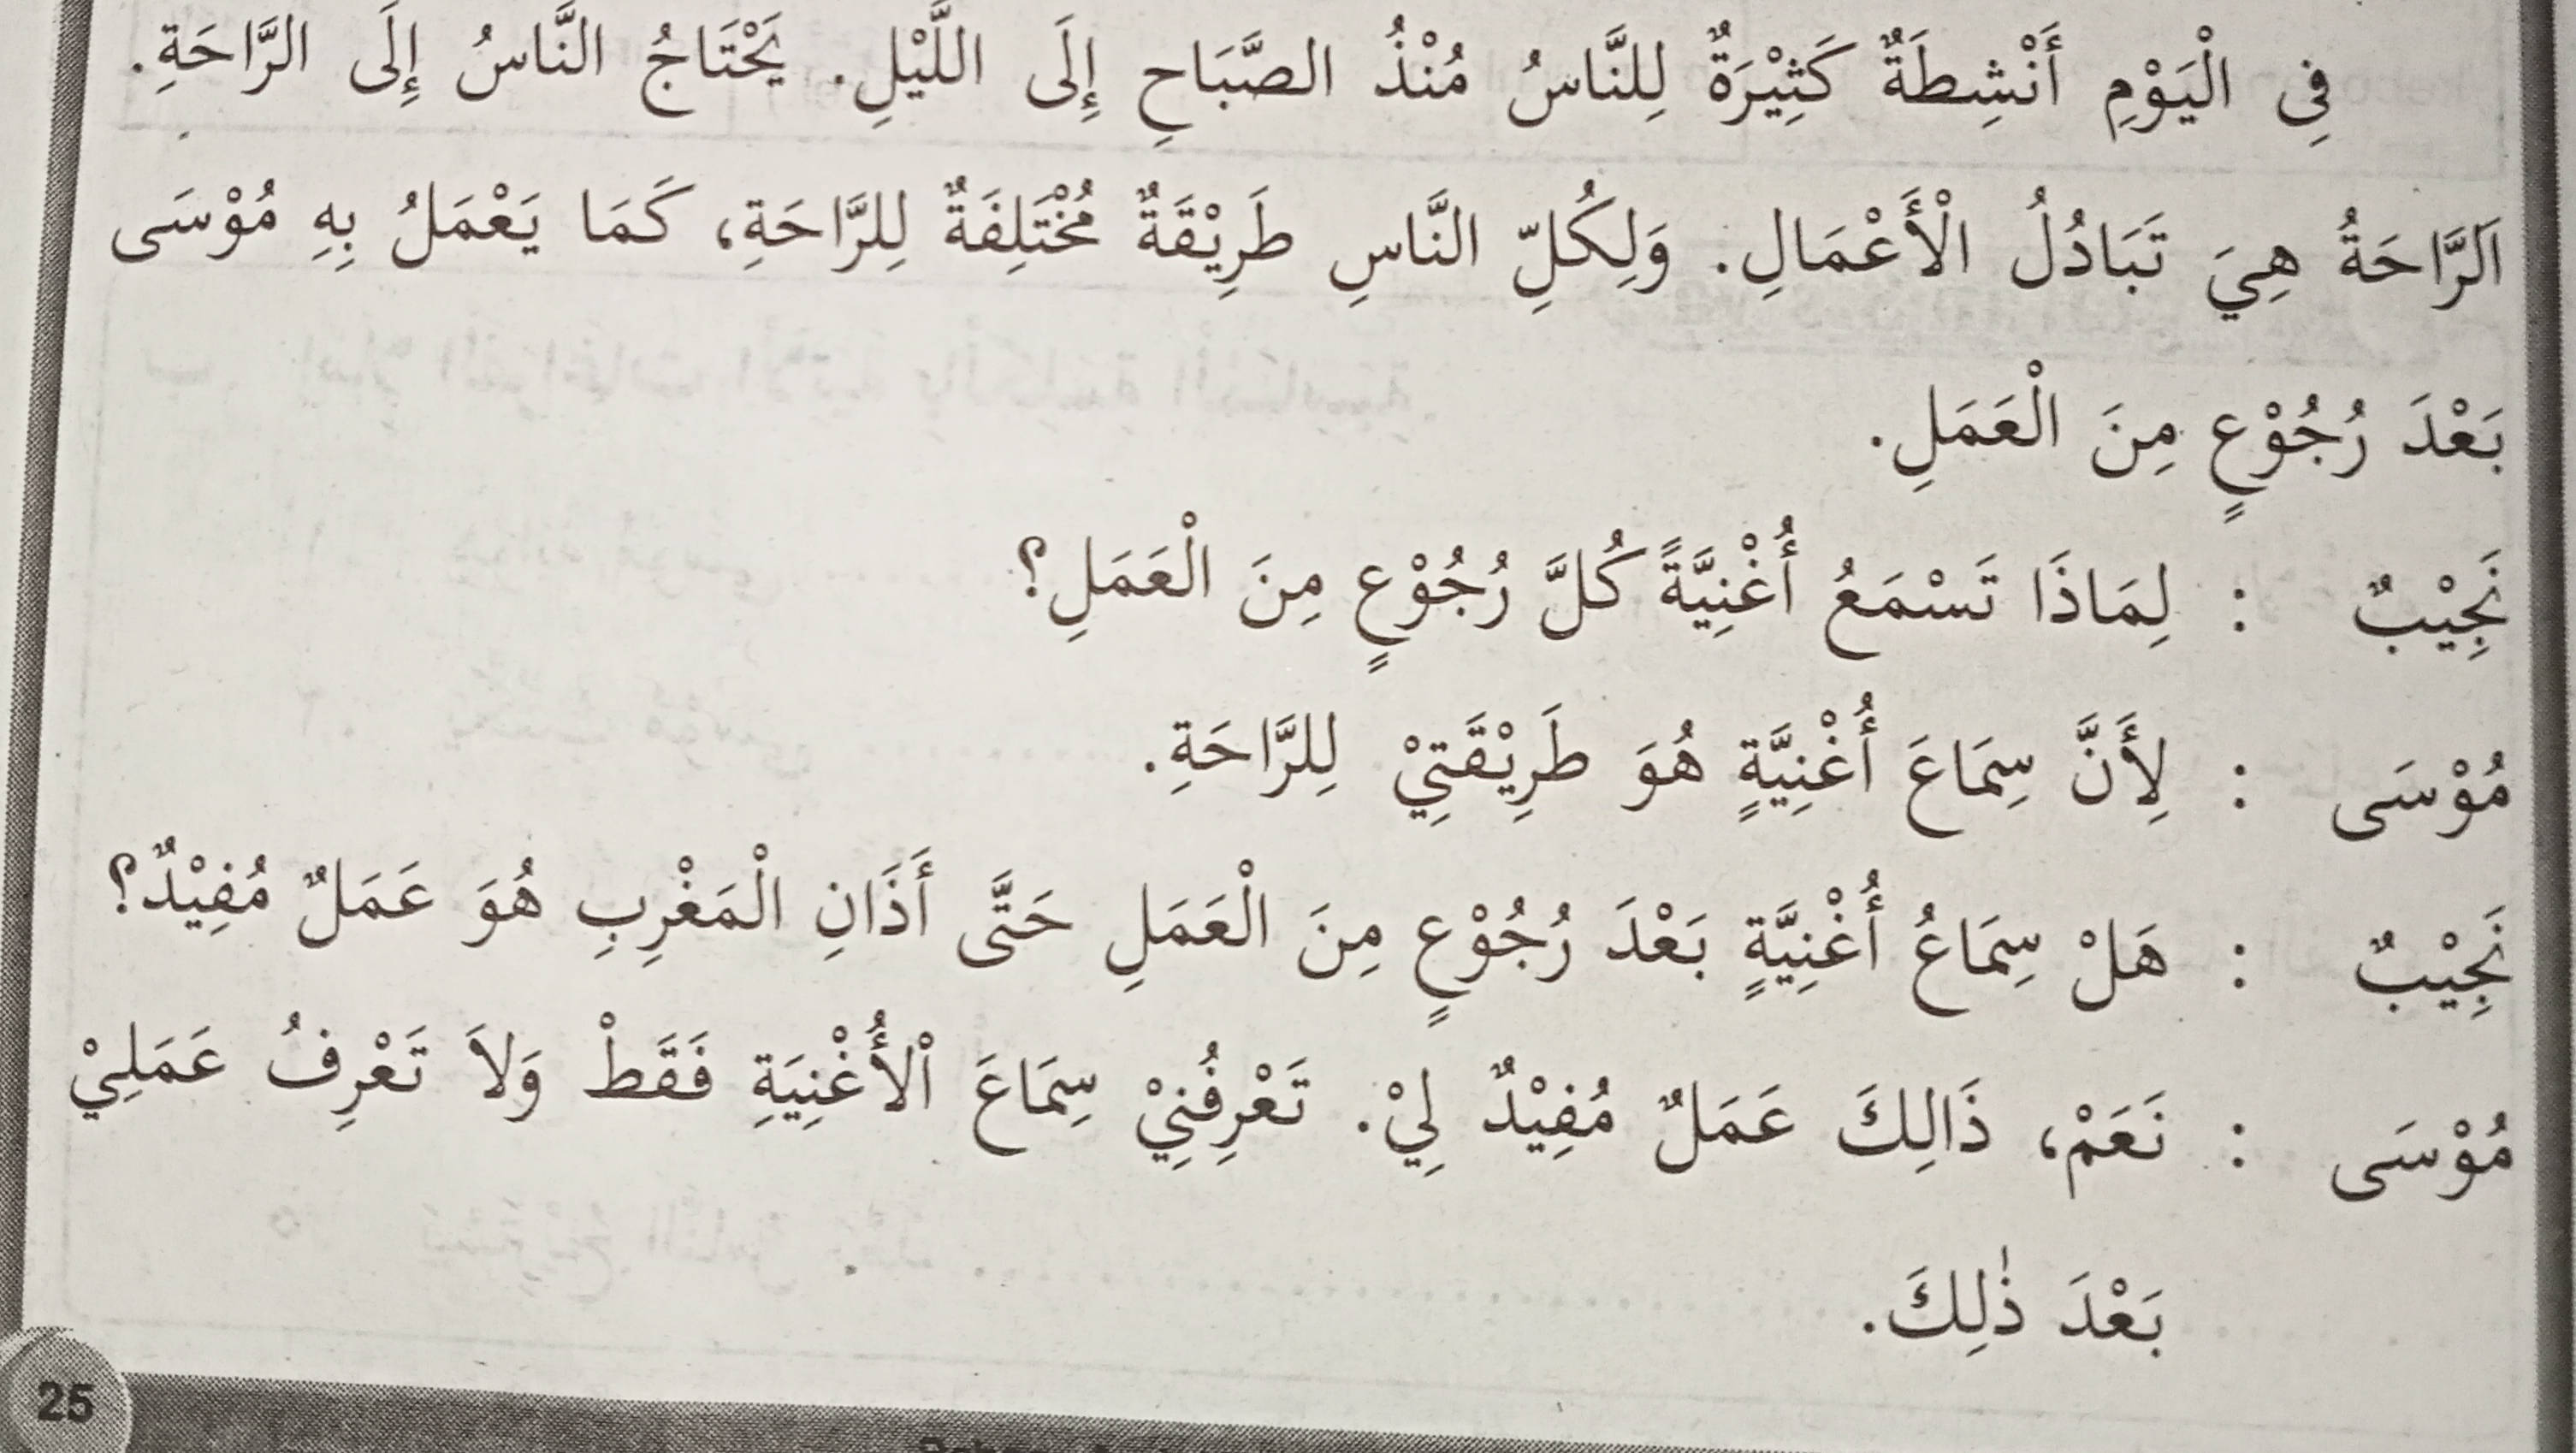 فِى الْيَوْمِ أَنْشِطَةٌ كَثِيْرَةٌ لِلنَّاسُ مُنْذُ الصَّبَاحِ إِلَى اللَّيْلِ. يَحْتَاجُ النَّاسُ إِلَى الرَّاحَةِ.
اَلرَّاحَةُ هِيَ تَبَادُلُ الْأَعْمَالِ. وَلِكُلِّ النَّاسِ طَرِيْقَةٌ مُخْتَلِفَةٌ لِلرَّاحَةِ، كَمَا يَعْمَلُ بِهِ مُوْسَى
بَعْدَ رُجُوْعٍ مِنَ الْعَمَلِ.
نَجِيْبٌ : لِمَاذَا تَسْمَعُ أُغْنِيَّةً كُلَّ رُجُوْعٍ مِنَ الْعَمَلِ؟
مُوْسَى : لِأَنَّ سِمَاعَ أُغْنِيَّةٍ هُوَ طَرِيْقَتِيْ لِلرَّاحَةِ.
نَجِيْبٌ : هَلْ سِمَاعُ أُغْنِيَّةٍ بَعْدَ رُجُوْعٍ مِنَ الْعَمَلِ حَتَّى أَذَانِ الْمَغْرِبِ هُوَ عَمَلٌ مُفِيْدٌ؟
مُوْسَى : نَعَمْ، ذَالِكَ عَمَلٌ مُفِيْدٌ لِيْ. تَعْرِفُنِيْ سِمَاعَ اْلأُغْنِيَةِ فَقَطْ وَلاَ تَعْرِفُ عَمَلِيْ
بَعْدَ ذٰلِكَ.
25